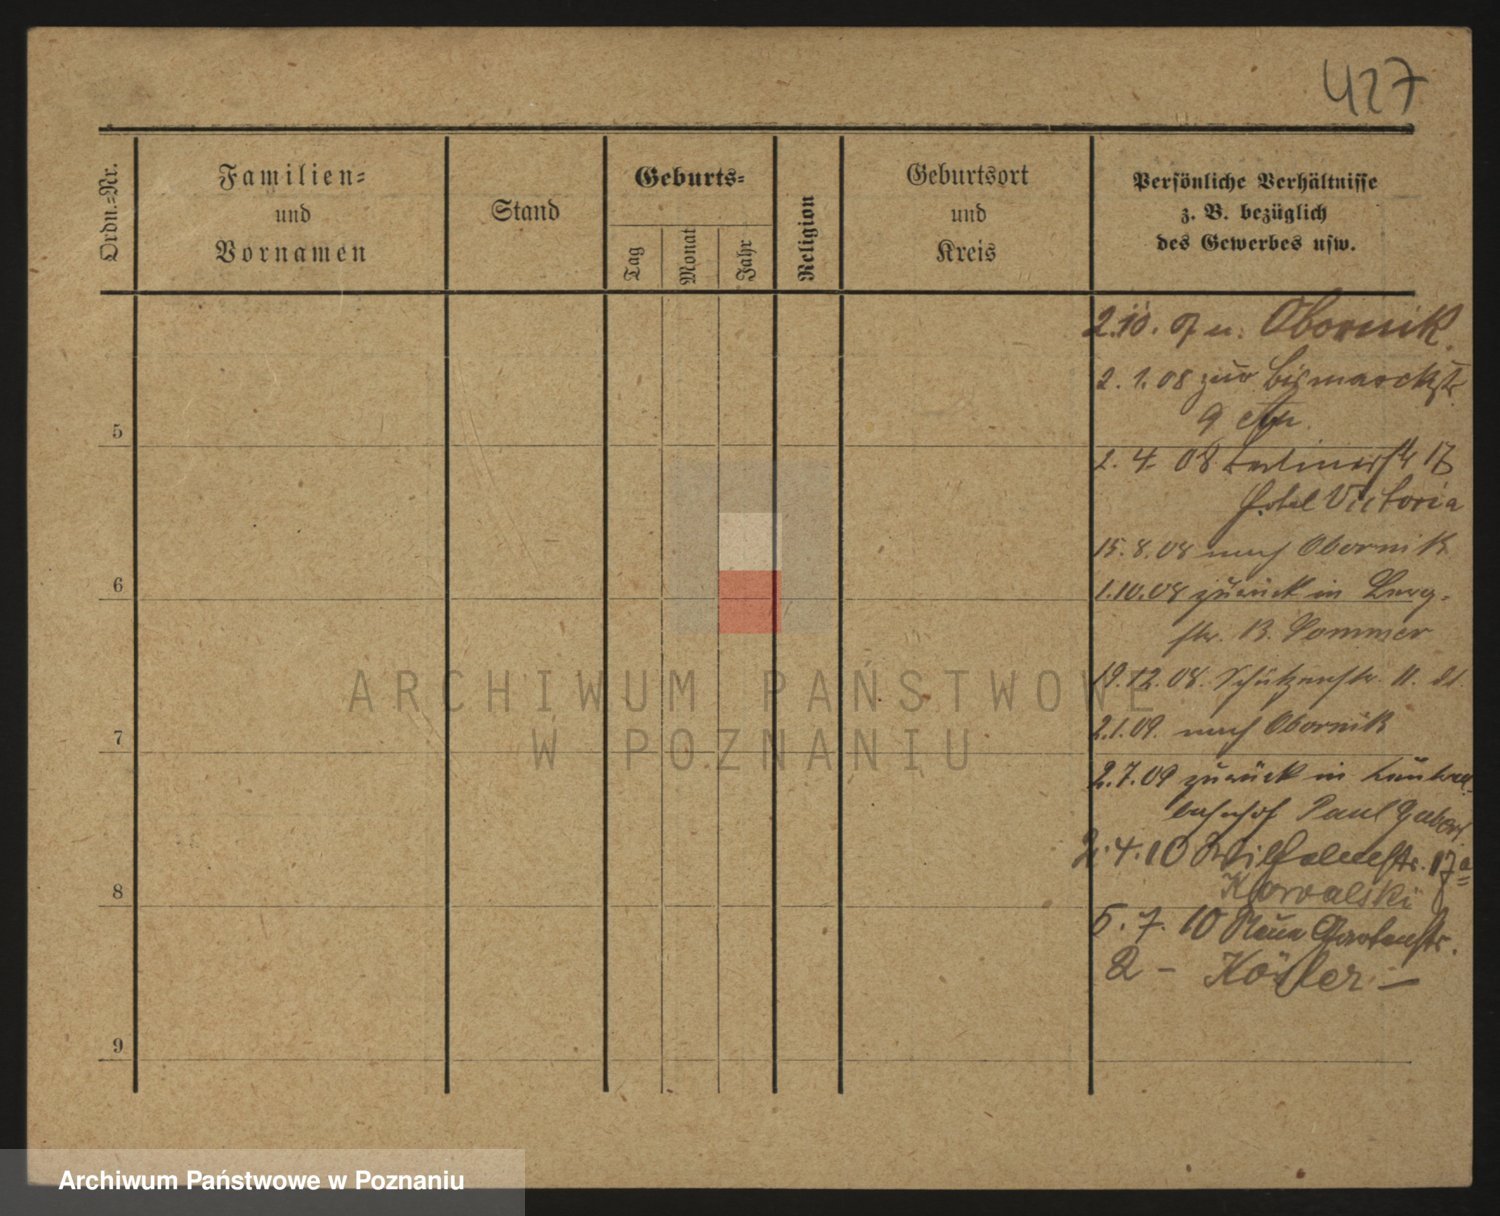 427
Ordn.-Nr.
Familien-
und
Vornamen
Stand
Geburts-
Tag
Monat
Jahr
Religion
Geburtsort
und
Kreis
Persönliche Verhältnisse
z. B. bezüglich
des Gewerbes usw.
2.10. 07 n. Obornik.
2. 1. 08 zur Bismarckstr
9
5
2. 4. 08 Berlinerstr 17
Hotel Victoria
15. 8. 08 nach Obornik
6
1.10.08 zurück in Berg-
str. 13. Sommer
19.12.08. Schützenstr. 11.
2.1.09. nach Obornik
7
2.7.09 zurück in
bahnhof Paul
2. 4. 10 Wilhelmstr. 17a
8
Kowalski
5. 7. 10 Neue Gartenstr.
2 - Kösler -
9
ARCHIWUM PAŃSTWOWE
W POZNANIU
Archiwum Państwowe w Poznaniu